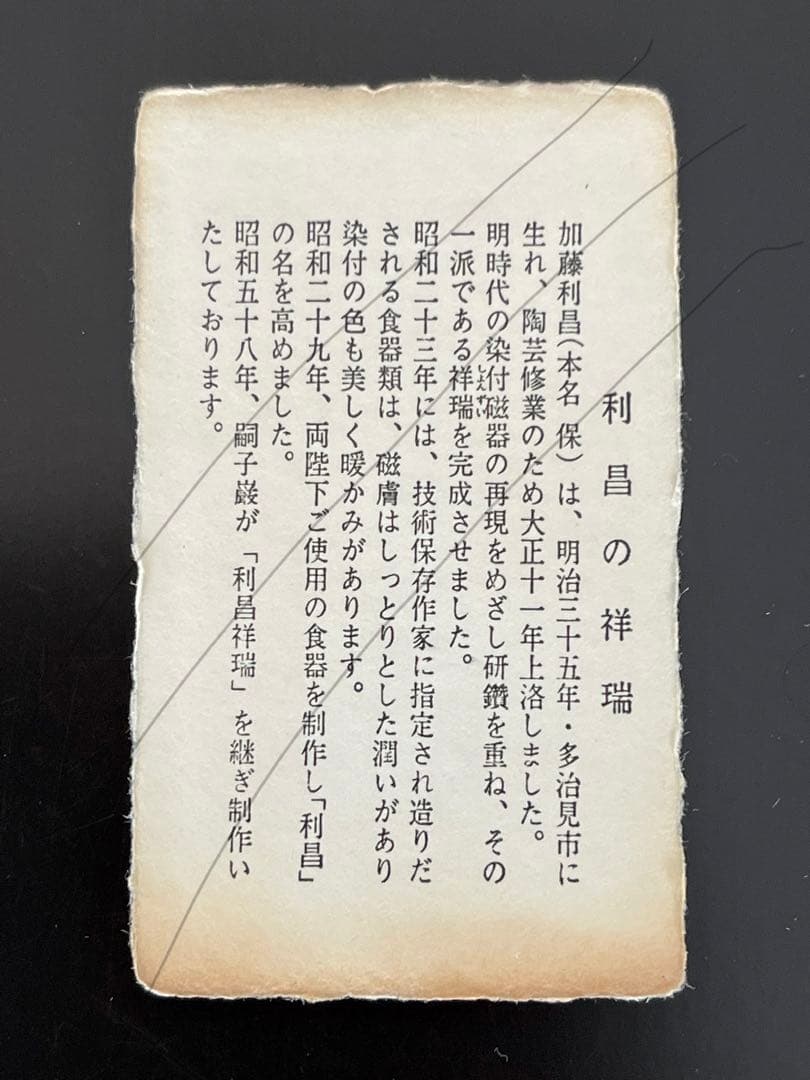 利昌の祥瑞
加藤利昌(本名 保)は、明治三十五年・多治見市に
生れ、陶芸修業のため大正十一年上洛しました。
明時代の染付磁器の再現をめざし研鑽を重ね、その
一派である祥瑞を完成させました。
しょんずい
昭和二十三年には、技術保存作家に指定され造りだ
される食器類は、磁膚はしっとりとした潤いがあり
染付の色も美しく暖かみがあります。
昭和二十九年、両陛下ご使用の食器を制作し「利昌」
の名を高めました。
昭和五十八年、嗣子巌が「利昌祥瑞」を継ぎ制作い
たしております。